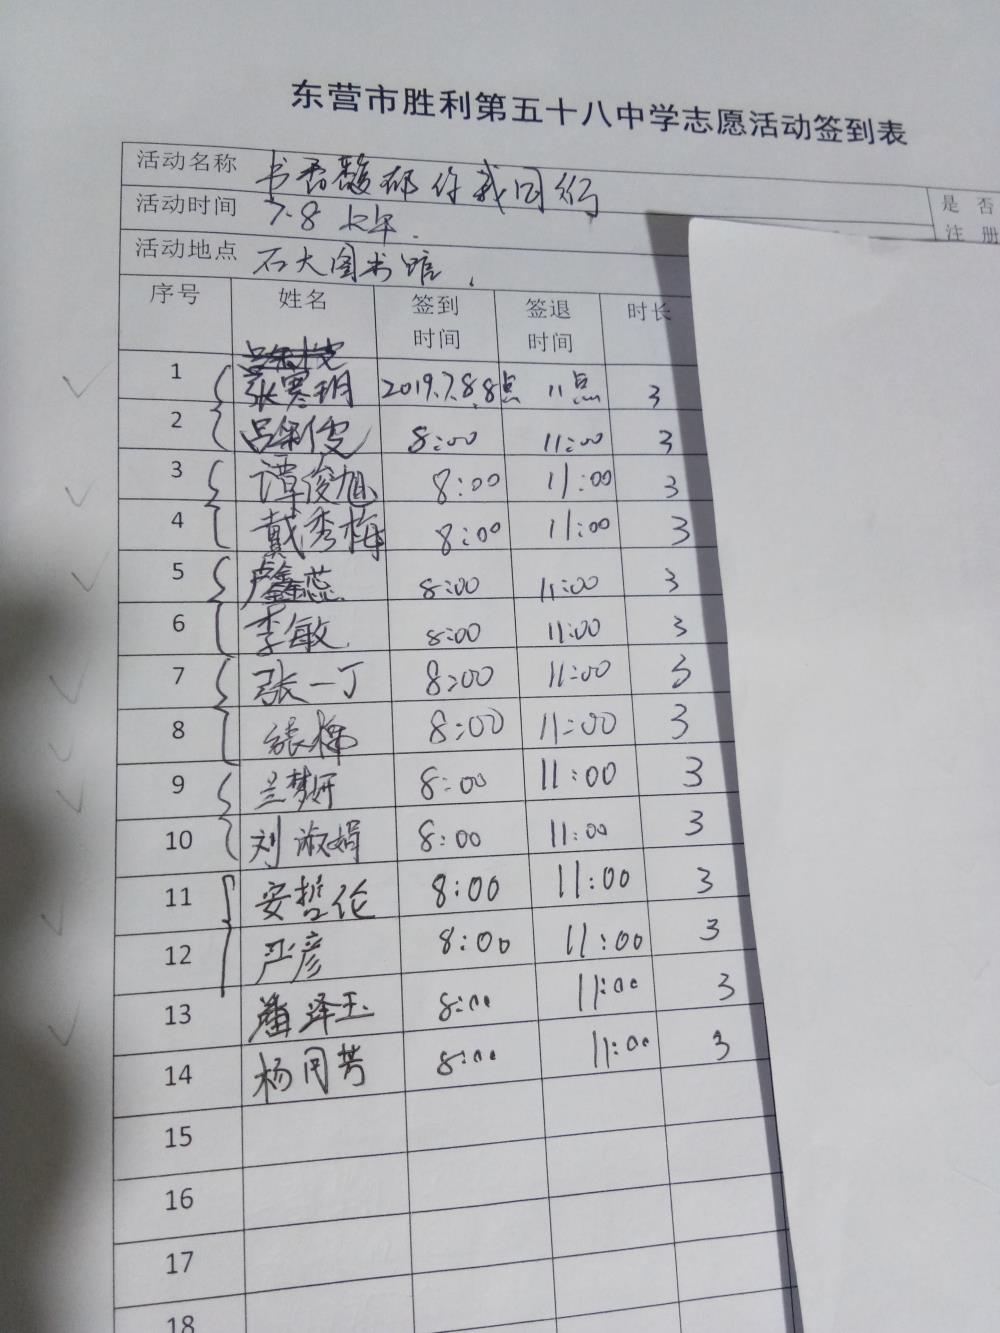 东营市胜利第五十八中学志愿活动签到表
活动名称 书香馥郁 你我同行
是 否
活动时间 7.8 上午.
注 册
活动地点 石大图书馆.
序号 姓名 签到时间 签退时间 时长
1 张寒玥 2019.7.8.8点 11点 3
2 吕保俊 8:00 11:00 3
3 谭俊旭 8:00 11:00 3
4 戴秀梅 8:00 11:00 3
5 卢鑫蕊 8:00 11:00 3
6 李敏. 8:00 11:00 3
7 张一丁 8:00 11:00 3
8 张梅 8:00 11:00 3
9 兰梦妍 8:00 11:00 3
10 刘淑娟 8:00 11:00 3
11 安哲伦 8:00 11:00 3
12 严彦 8:00 11:00 3
13 潘泽玉 8:00 11:00 3
14 杨同芳 8:00 11:00 3
15
16
17
18